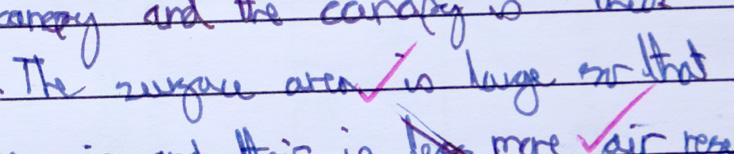 canopy and the canopy is
. The surface area is large so that
and this is more air